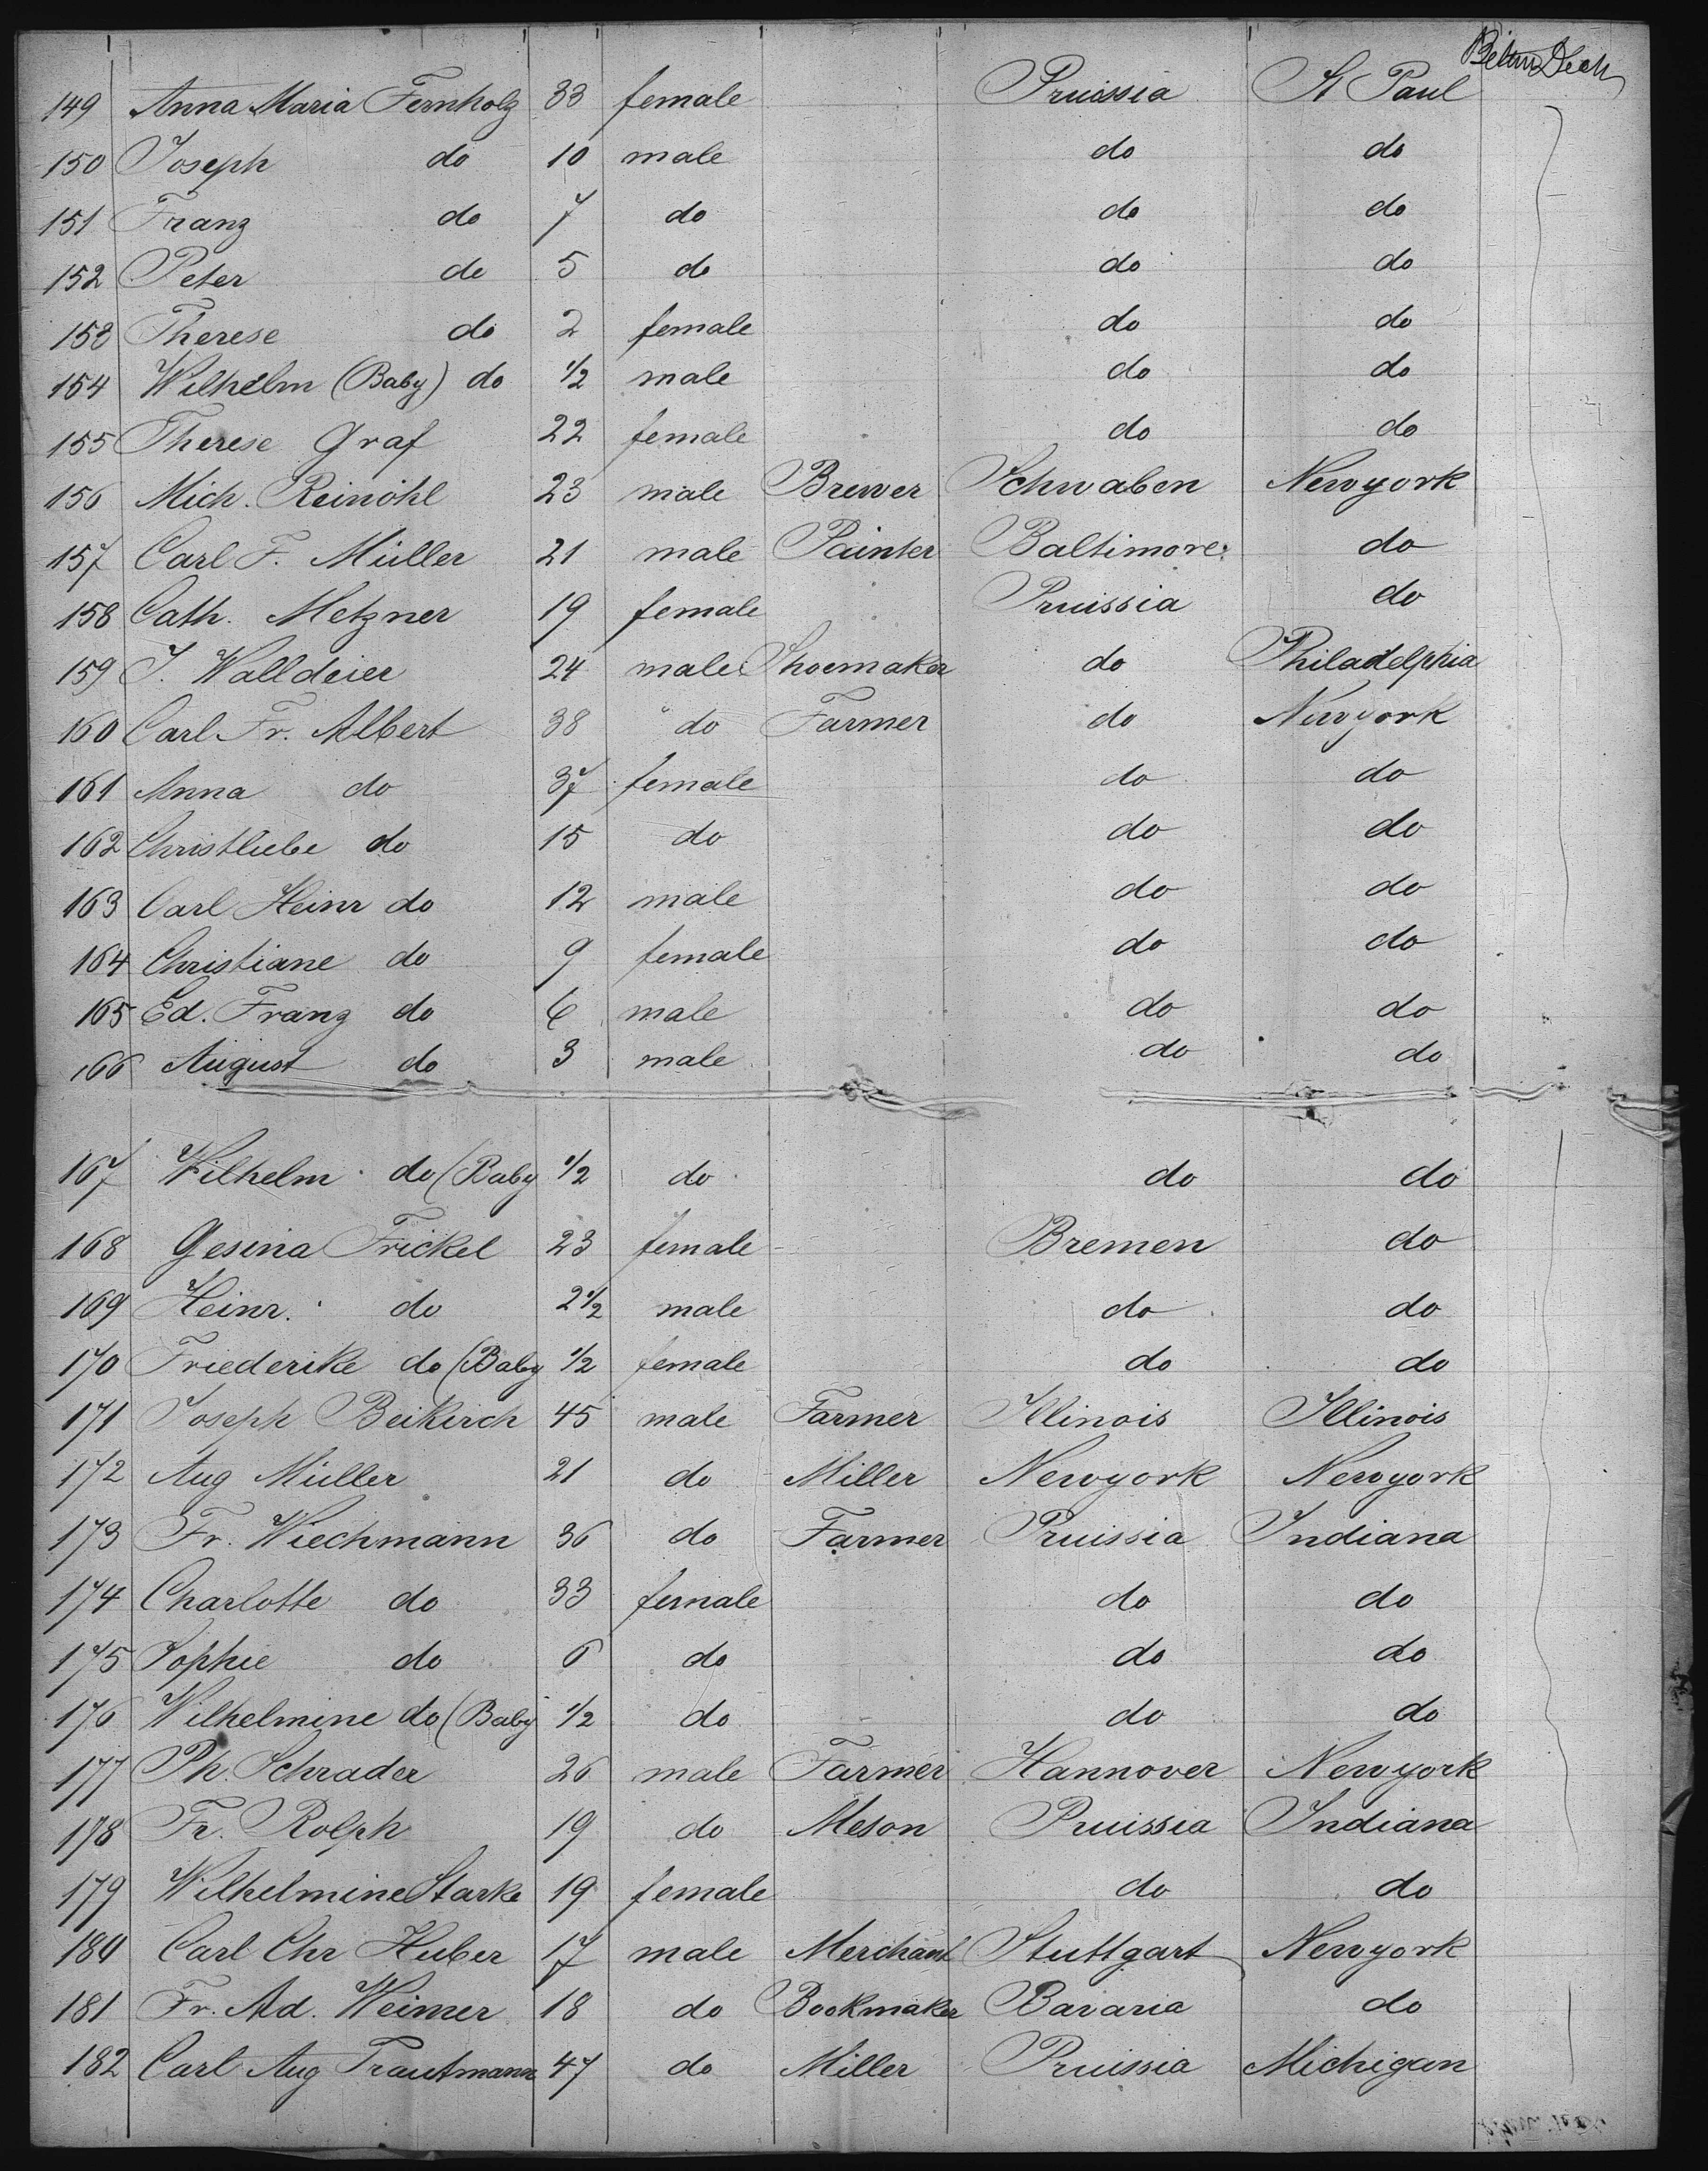 Betwn Deck
149 Anna Maria Fernholz 33 female Pruissia St Paul
150 Joseph do 10 male do do
151 Franz do 7 do do do
152 Peter do 5 do do do
153 Therese do 2 female do do
154 Wilhelm (Baby) do 1/2 male do do
155 Therese Graf 22 female do do
156 Mich. Reinöhl 23 male Brewer Schwaben Newyork
157 Carl F. Müller 21 male Painter Baltimore do
158 Cath. Metzner 19 female Pruissia do
159 J. Walldeier 24 male Shoemaker do Philadelphia
160 Carl Fr. Albert 38 do Farmer do Newyork
161 Anna do 37 female do do
162 Christliebe do 15 do do do
163 Carl Heinr do 12 male do do
164 Christiane do 9 female do do
165 Ed. Franz do 6 male do do
166 August do 3 male do do
167 Wilhelm do (Baby 1/2 do do do
168 Gesina Frickel 23 female Bremen do
169 Heinr. do 2 1/2 male do do
170 Friederike do (Baby 1/2 female do do
171 Joseph Beikirch 45 male Farmer Illinois Illinois
172 Aug Müller 21 do Miller Newyork Newyork
173 Fr. Wiechmann 36 do Farmer Pruissia Indiana
174 Charlotte do 33 female do do
175 Sophie do 6 do do do
176 Wilhelmine do (Baby 1/2 do do do
177 Ph. Schrader 26 male Farmer Hannover Newyork
178 Fr. Rolph 19 do Meson Pruissia Indiana
179 Wilhelmine Starke 19 female do do
180 Carl Chr Huber 17 male Merchant Stuttgart Newyork
181 Fr. Ad. Weimer 18 do Bookmaker Bavaria do
182 Carl Aug Trautmann 47 do Miller Pruissia Michigan